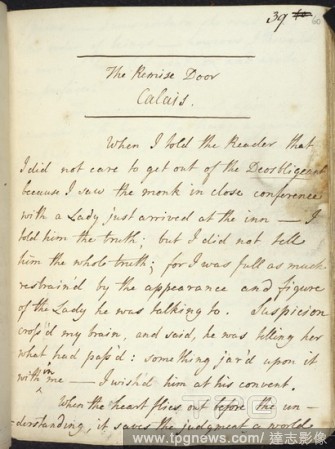 39 40
The Remise Door
Calais.
When I told the Reader that
I did not care to get out of the Desobligeant
because I saw the monk in close conference
with a Lady just arrived at the inn — I
told him the truth; but I did not tell
him the whole truth; for I was full as much
restrain'd by the appearance and figure
of the Lady he was talking to. Suspicion
cross'd my brain, and said, he was telling her
what had pass'd: something jar'd upon it
within me — I wish'd him at his convent.
When the heart flies out before the un-
-derstanding, it saves the judgment a world
www.tpgnews.com 達志影像